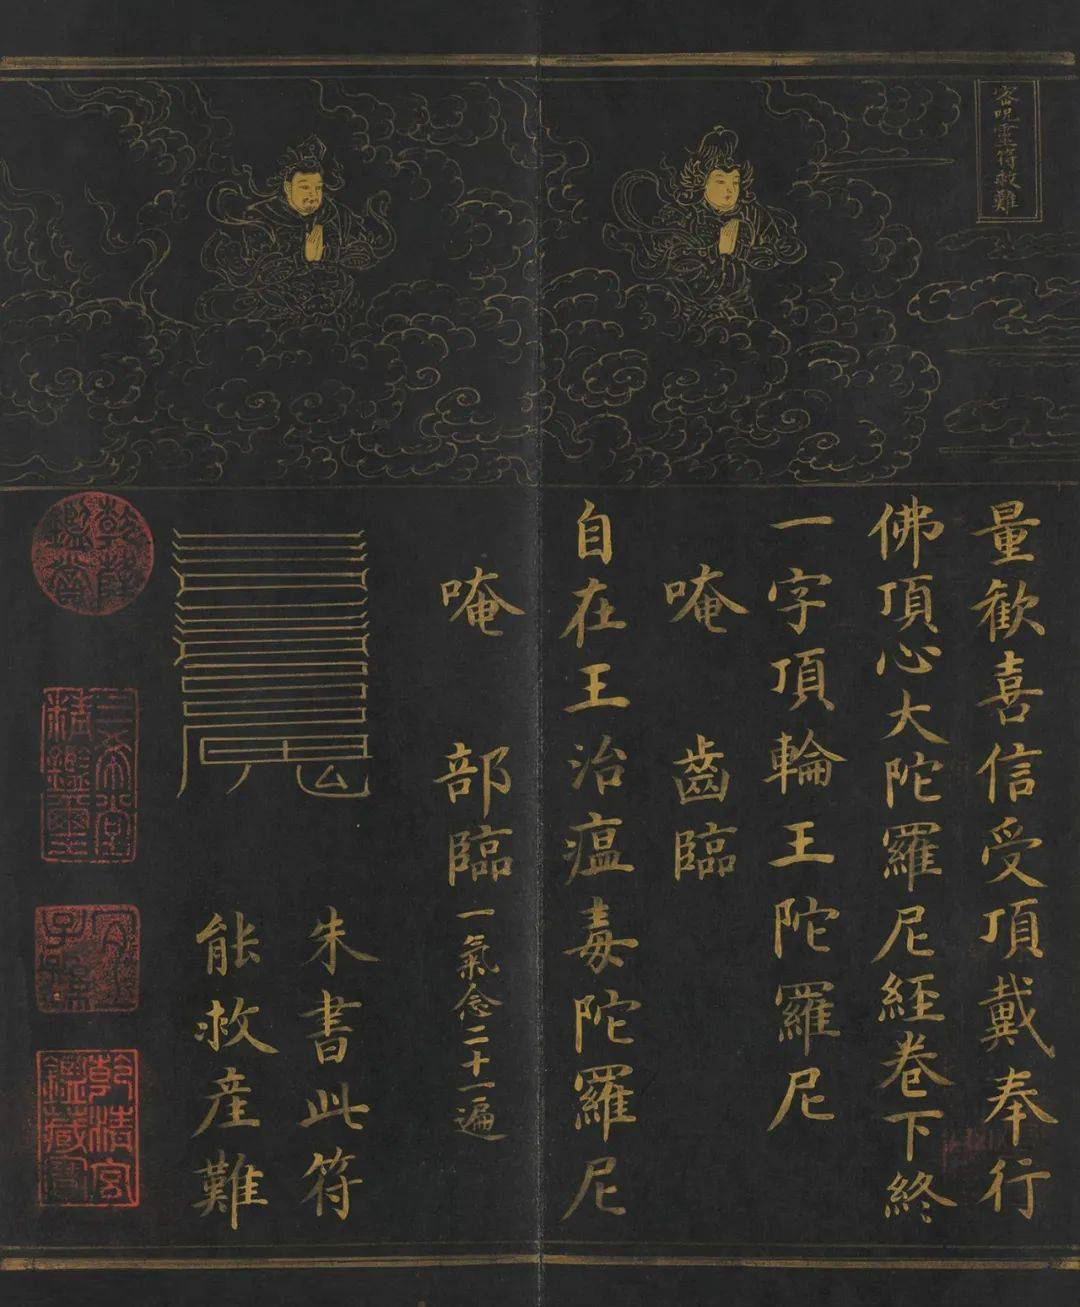 密呪靈符救難
量歡喜信受頂戴奉行
佛頂心大陀羅尼經卷下終
一字頂輪王陀羅尼
唵 齒臨
自在王治瘟毒陀羅尼
唵 部臨 一氣念二十一遍
朱書此符
能救產難
乾隆鑑賞
三希堂精鑑璽
宜子孫
乾清宮鑑藏寶